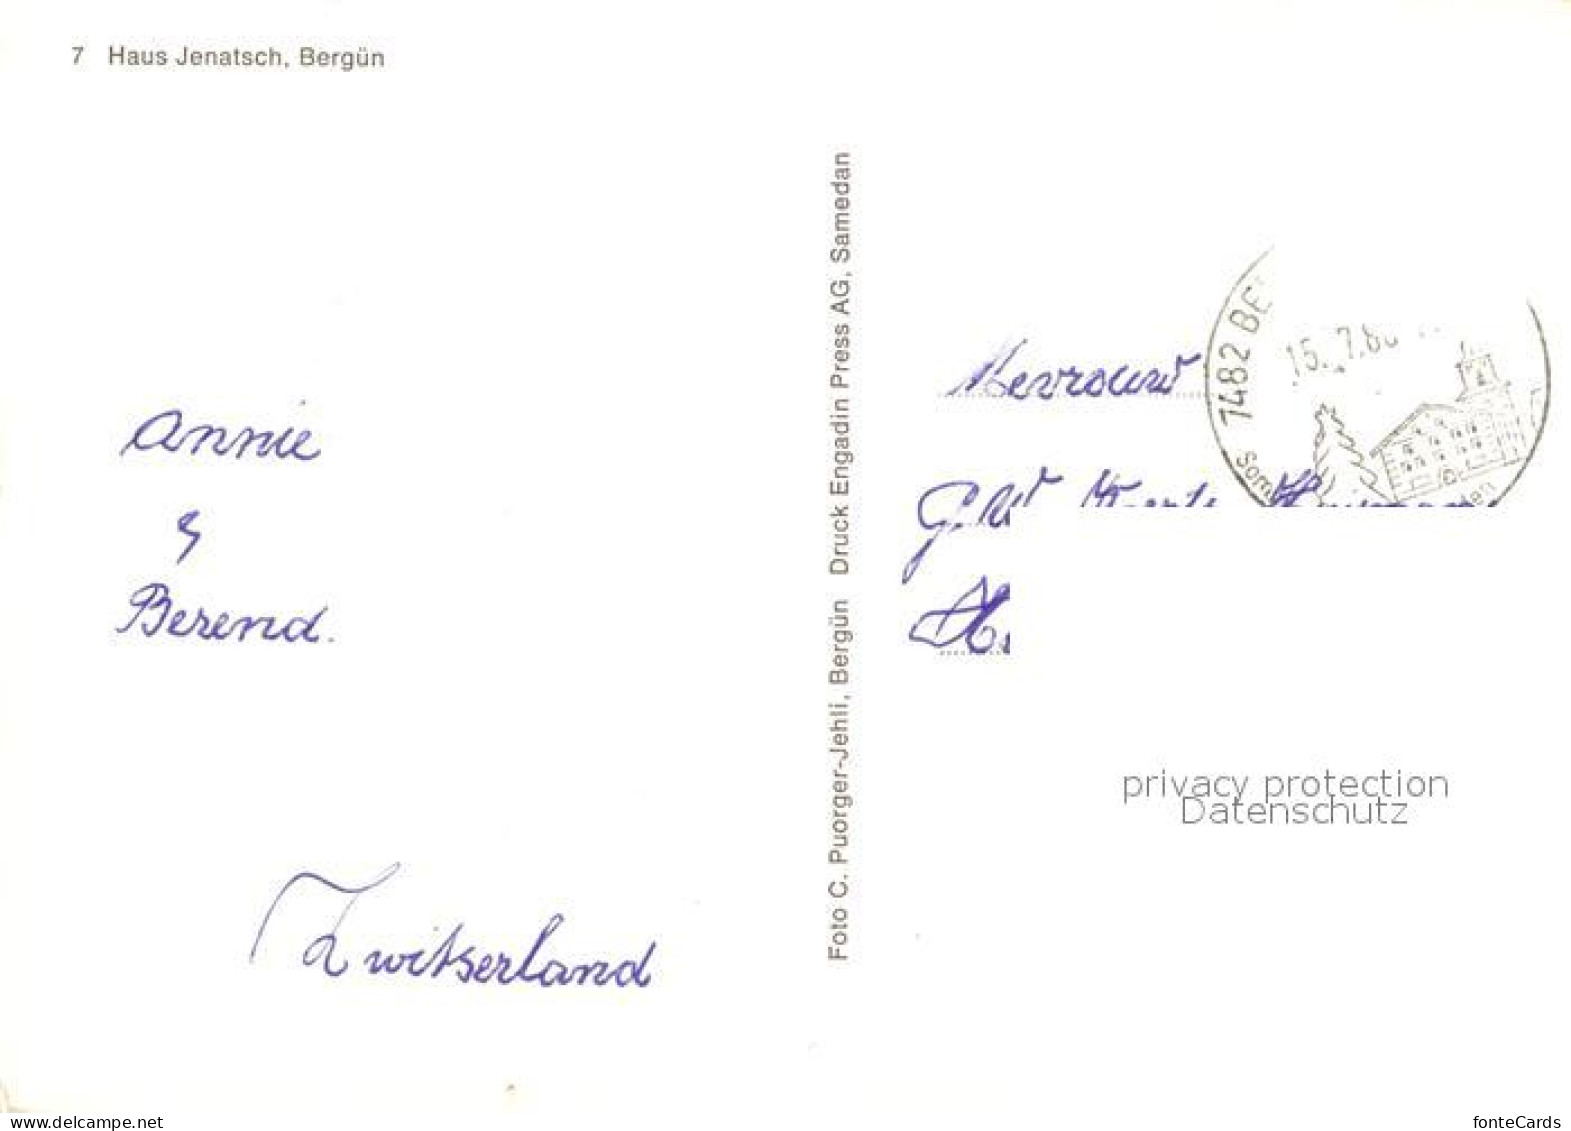 7 Haus Jenatsch, Bergün
Annie
&
Berend.
Zwitserland
Foto C. Puorger-Jehli, Bergün Druck Engadin Press AG, Samedan
Mevrouw
1482 BE
15.7.86
Som
den
privacy protection
Datenschutz
www.delcampe.net
fonteCards